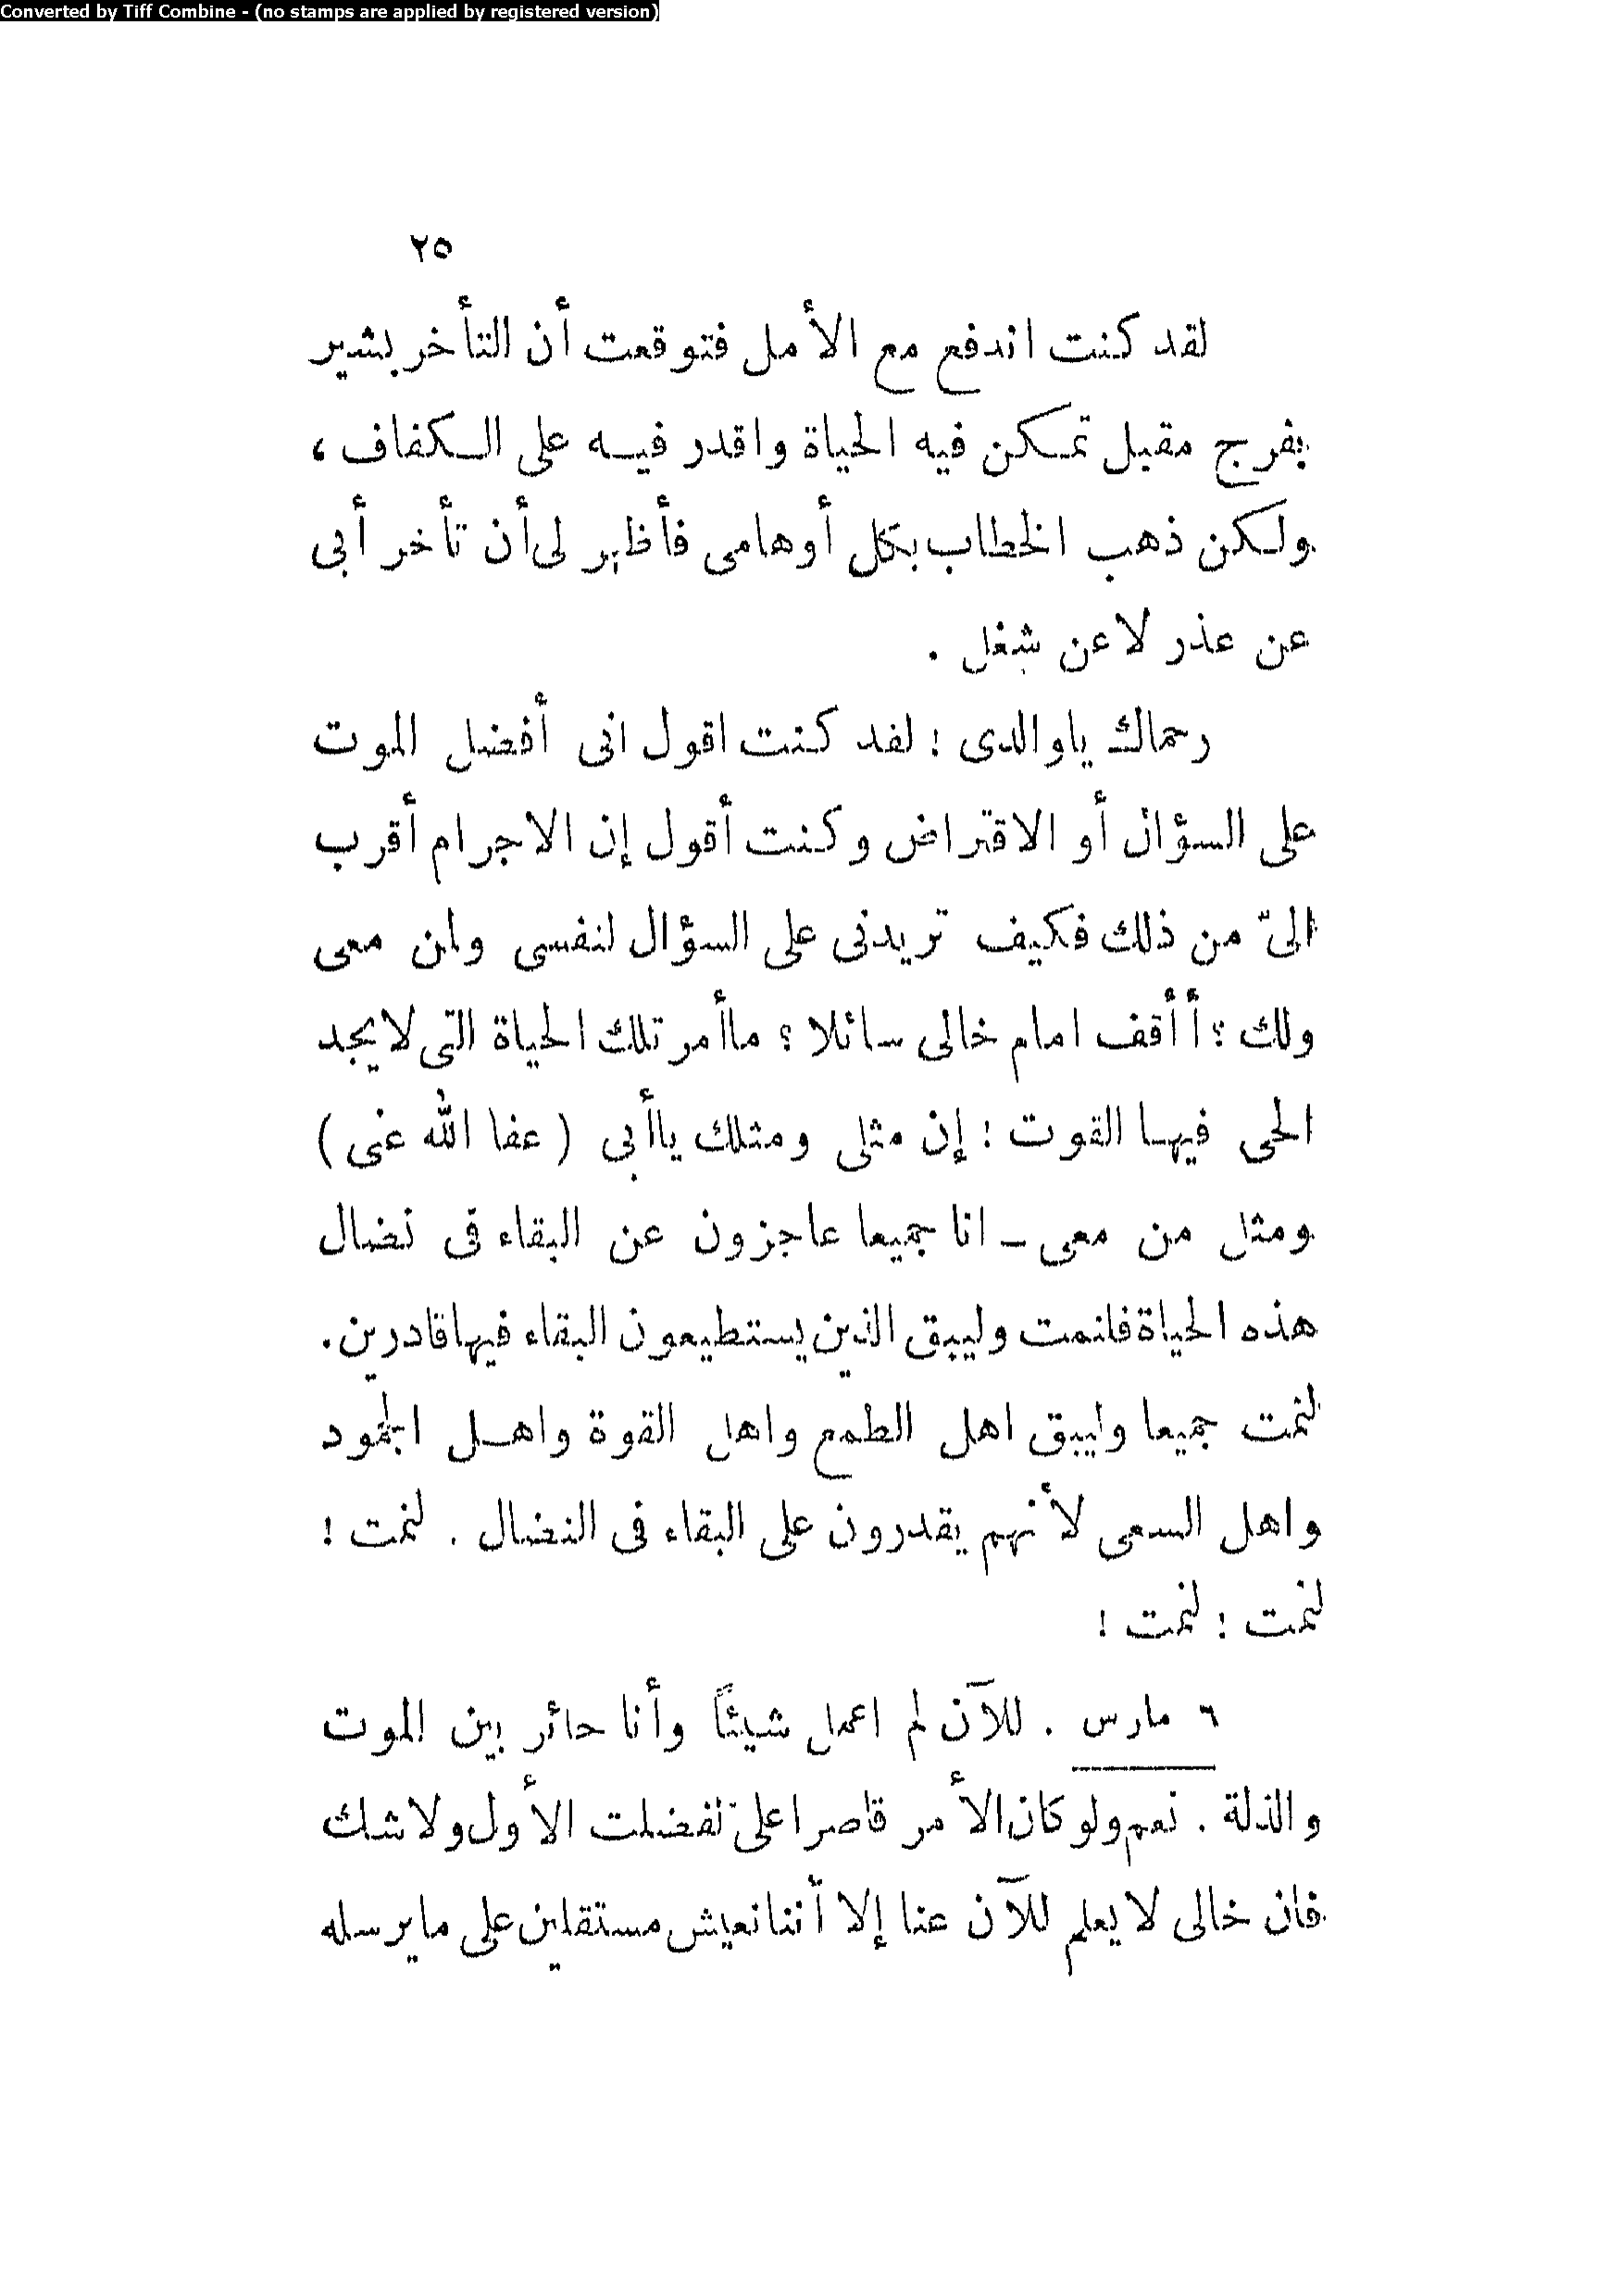 Converted by Tiff Combine - (no stamps are applied by registered version)
٢٥
لقد كنت اندفع مع الأمل فتوقعت أن التأخر بشير
بفرج مقبل تمكن فيه الحياة واقدر فيه على الكفاف ،
ولكن ذهب الخطاب بكل أوهامى فأظهر لى أن تأخر أبى
عن عذر لا عن شغل .
رحماك ياوالدى ! لقد كنت اقول انى أفضل الموت
على السؤال أو الاقتراض وكنت أقول إن الاجرام أقرب
الىّ من ذلك فكيف تريدنى على السؤال لنفسى ولمن معى
ولك ؟ أأقف امام خالى سائلا ؟ ماأمر تلك الحياة التى لا يجد
الحى فيها القوت ! إن مثلى ومثلك ياأبى ( عفا الله عنى )
ومثل من معى ــ انا جميعا عاجزون عن البقاء فى نضال
هذه الحياة فلنمت وليبق الذين يستطيعون البقاء فيها قادرين.
لنمت جميعا وليبق اهل الطمع واهل القوة واهل الجمود
واهل السعى لأنهم يقدرون على البقاء فى النضال . لنمت !
لنمت ! لنمت !
٦ مارس . للآن لم اعمل شيئاً وأنا حائر بين الموت
والذلة . نعم ولو كان الأمر قاصرا علىّ لفضلت الأول ولا شك
فان خالى لا يعلم للآن عنا إلا أننا نعيش مستقلين على ما يرسله